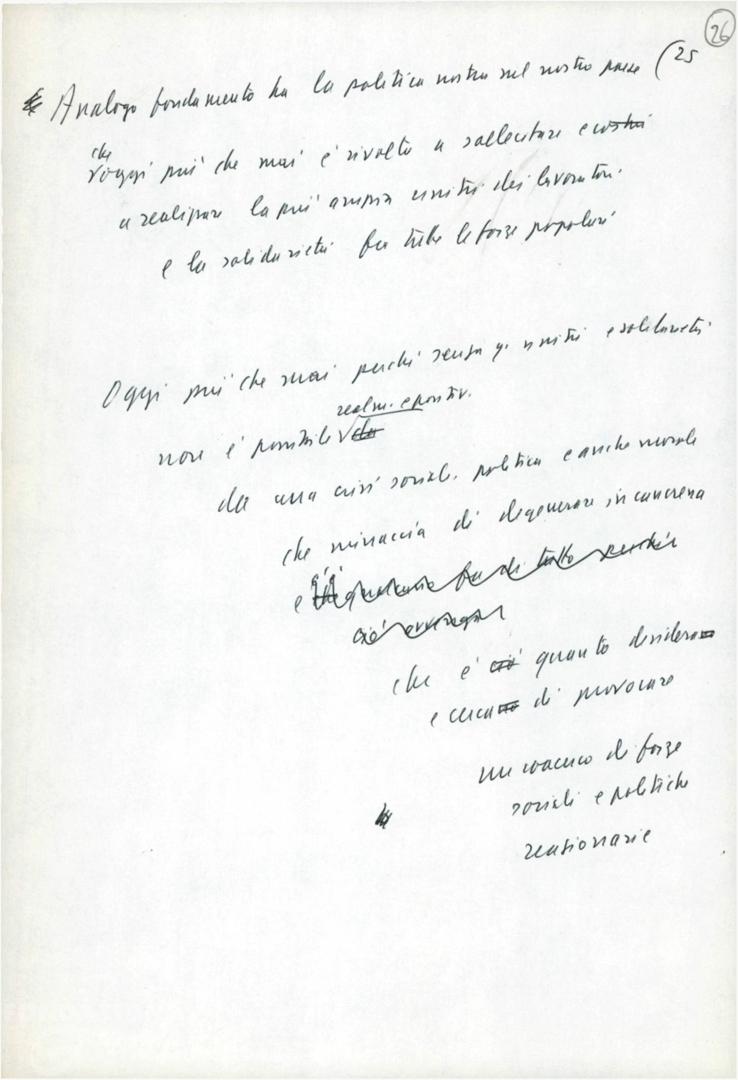 26
Analogo fondamento ha la politica nostra nel nostro paese (25
che
oggi più che mai è rivolta a sollecitare e costrui
a realizzare la più ampia unità dei lavoratori
e la solidarietà fra tutte le forze popolari
Oggi più che mai perché senza q. unità e solidarietà
realm. e positiv.
non è possibile
da una crisi sociale, politica e anche morale
che minaccia di degenerare in cancrena
e qualcuno fa di tutto perché
ciò avvenga
che è ciò quanto desidera
e cerca di provocare
un coacervo di forze
sociali e politiche
reazionarie